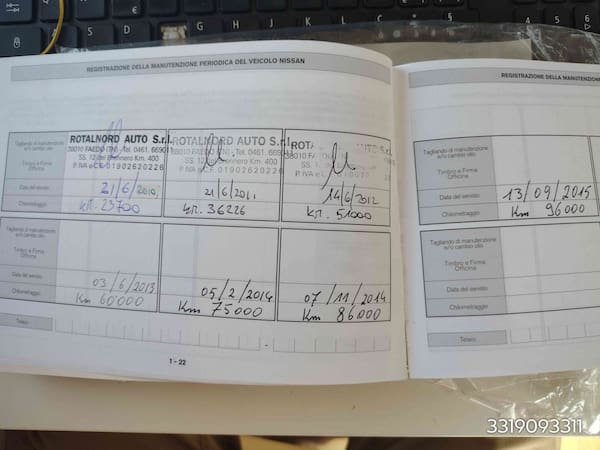 REGISTRAZIONE DELLA MANUTENZIONE PERIODICA DEL VEICOLO NISSAN
Tagliando di manutenzione
e/o cambio olio
Timbro e Firma
Officina
Data del servizio
Chilometraggio
ROTALNORD AUTO S.r.l.
38010 FAEDO (TN) Tel. 0461.
SS. 12 del Brennero Km. 400
P. IVA e C.F. 01902620226
21/6/2010
KM. 23700
ROTALNORD AUTO S.r.l.
38010 FAEDO (TN) Tel. 0461.
SS. 12 del Brennero Km. 400
P. IVA e C.F. 01902620226
21/6/2011
KM. 36226
ROTA
38010 FA
SS. 12 del Brennero Km. 400
P. IVA
14/6/2012
KM. 51000
Tagliando di manutenzione
e/o cambio olio
Timbro e Firma
Officina
Data del servizio
Chilometraggio
03/6/2013
Km 60000
05/2/2014
Km 75000
07/11/2014
Km 86000
Telaio:
1 - 22
REGISTRAZIONE DELLA MANUTENZION
Tagliando di manutenzione
e/o cambio olio
Timbro e Firma
Officina
Data del servizio
Chilometraggio
13/09/2015
Km 96000
Tagliando di manutenzione
e/o cambio olio
Timbro e Firma
Officina
Data del servizio
Chilometraggio
Telaio:
3319093311